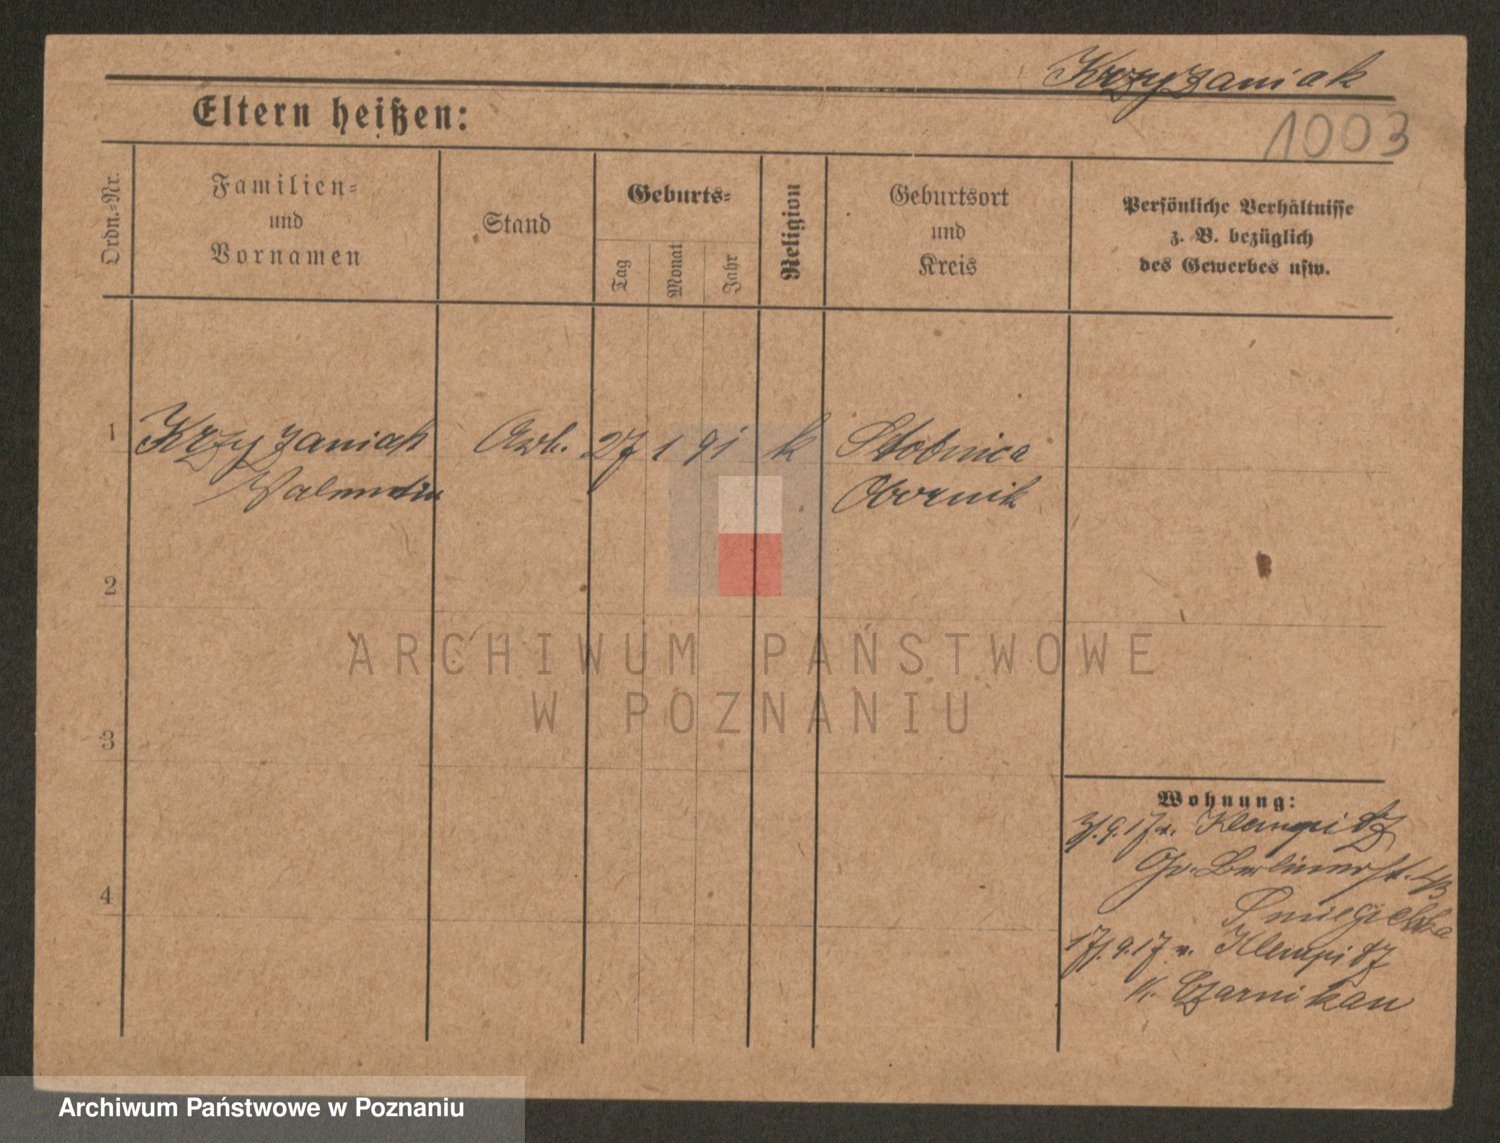 Krzyżaniak
1003
Eltern heißen:
Ordn.-Nr.
Familien-
und
Vornamen
Stand
Geburts-
Tag
Monat
Jahr
Religion
Geburtsort
und
Kreis
Persönliche Verhältnisse
z. B. bezüglich
des Gewerbes usw.
1 Krzyzaniak Arb. 27 1 91 k Stobnica
Valentin Obornik
2
ARCHIWUM PAŃSTWOWE
W POZNANIU
3
Wohnung:
9.17 v. Klempitz
Gr. Berlinerst.
4
17.9.17 v. Klempitz
K. Czarnikau
Archiwum Państwowe w Poznaniu